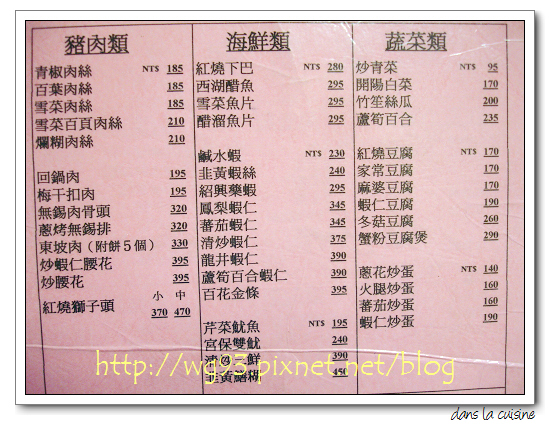 豬肉類
青椒肉絲 NT$ 185
百葉肉絲 185
雪菜肉絲 185
雪菜百頁肉絲 210
爛糊肉絲 210
回鍋肉 195
梅干扣肉 195
無錫肉骨頭 320
蔥烤無錫排 320
東坡肉(附餅5個) 330
炒蝦仁腰花 395
炒腰花 395
小 中
紅燒獅子頭 370 470
海鮮類
紅燒下巴 NT$ 280
西湖醋魚 295
雪菜魚片 295
醋溜魚片 295
鹹水蝦 NT$ 230
韭黃蝦絲 240
紹興藥蝦 295
鳳梨蝦仁 345
蕃茄蝦仁 345
清炒蝦仁 375
龍井蝦仁 390
蘆筍百合蝦仁 390
百花金條 395
芹菜魷魚 NT$ 195
宮保雙魷 240
鮮 390
韭黃鱔糊 450
蔬菜類
炒青菜 NT$ 95
開陽白菜 170
竹笙絲瓜 200
蘆筍百合 235
紅燒豆腐 NT$ 170
家常豆腐 170
麻婆豆腐 170
蝦仁豆腐 190
冬菇豆腐 260
蟹粉豆腐煲 290
蔥花炒蛋 NT$ 140
火腿炒蛋 160
蕃茄炒蛋 160
蝦仁炒蛋 190
http://wg93.pixnet.net/blog
dans la cuisine